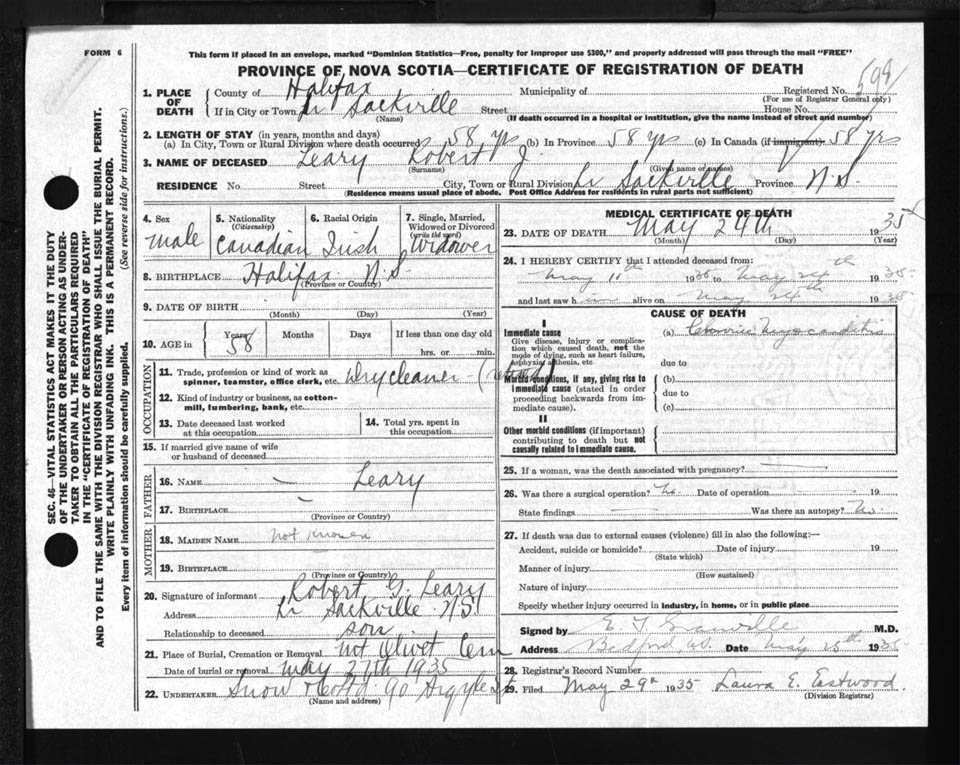 FORM 6
This form if placed in an envelope, marked "Dominion Statistics—Free, penalty for improper use $300," and properly addressed will pass through the mail "FREE"
PROVINCE OF NOVA SCOTIA—CERTIFICATE OF REGISTRATION OF DEATH
599
1. PLACE OF DEATH
County of Halifax Municipality of Registered No.
(For use of Registrar General only)
If in City or Town Lr Sackville Street House No.
(Name) (If death occurred in a hospital or institution, give the name instead of street and number)
2. LENGTH OF STAY (in years, months and days)
(a) In City, Town or Rural Division where death occurred 58 yrs (b) In Province 58 yrs (c) In Canada (if immigrant) 58 yrs
3. NAME OF DECEASED Leary Robert J.
(Surname) (Given name or names)
RESIDENCE No. Street City, Town or Rural Division Lr Sackville Province N.S.
(Residence means usual place of abode. Post Office Address for residents in rural parts not sufficient)
4. Sex
male
5. Nationality
(Citizenship)
Canadian
6. Racial Origin
Irish
7. Single, Married,
Widowed or Divorced
(write the word)
Widower
8. BIRTHPLACE Halifax N.S.
(Province or Country)
9. DATE OF BIRTH
(Month) (Day) (Year)
10. AGE in
Years Months Days If less than one day old
58 hrs. or min.
OCCUPATION
11. Trade, profession or kind of work as
spinner, teamster, office clerk, etc. Dry cleaner - (retired)
12. Kind of industry or business, as cotton-
mill, lumbering, bank, etc.
13. Date deceased last worked
at this occupation
14. Total yrs. spent in
this occupation
15. If married give name of wife
or husband of deceased
FATHER
16. NAME — Leary
17. BIRTHPLACE —
(Province or Country)
MOTHER
18. MAIDEN NAME not known
19. BIRTHPLACE
(Province or Country)
20. Signature of informant Robert G. Leary
Address Lr Sackville N.S.
Relationship to deceased son
21. Place of Burial, Cremation or Removal Mt Olivet Cem
Date of burial or removal May 27th 1935
22. UNDERTAKER Snow & Co Ltd 90 Argyle St
(Name and address)
MEDICAL CERTIFICATE OF DEATH
23. DATE OF DEATH May 24th 1935
(Month) (Day) (Year)
24. I HEREBY CERTIFY that I attended deceased from:
May 11th 1935 to May 24th 1935
and last saw him alive on May 24th 1935
CAUSE OF DEATH
I
Immediate cause
Give disease, injury or complica-
tion which caused death, not the
mode of dying, such as heart failure,
asphyxia, asthenia, etc.
(a) Chronic Myocarditis
due to
Morbid conditions, if any, giving rise to
immediate cause (stated in order
proceeding backwards from im-
mediate cause).
(b)
due to
(c)
II
Other morbid conditions (if important)
contributing to death but not
causally related to immediate cause.
25. If a woman, was the death associated with pregnancy? —
26. Was there a surgical operation? No. Date of operation — 19
State findings — Was there an autopsy? No.
27. If death was due to external causes (violence) fill in also the following:—
Accident, suicide or homicide? Date of injury 19
(State which)
Manner of injury
(How sustained)
Nature of injury
Specify whether injury occurred in industry, in home, or in public place
Signed by E. T. Granville M.D.
Address Bedford, N.S. Date May 25th 1935
28. Registrar's Record Number
29. Filed May 29th 1935 Laura E. Eastwood.
(Division Registrar)
SEC. 46—VITAL STATISTICS ACT MAKES IT THE DUTY
OF THE UNDERTAKER OR PERSON ACTING AS UNDER-
TAKER TO OBTAIN ALL THE PARTICULARS REQUIRED
IN THE "CERTIFICATE OF REGISTRATION OF DEATH"
AND TO FILE THE SAME WITH THE DIVISION REGISTRAR WHO SHALL ISSUE THE BURIAL PERMIT.
WRITE PLAINLY WITH UNFADING INK. THIS IS A PERMANENT RECORD.
Every item of information should be carefully supplied. (See reverse side for instructions.)